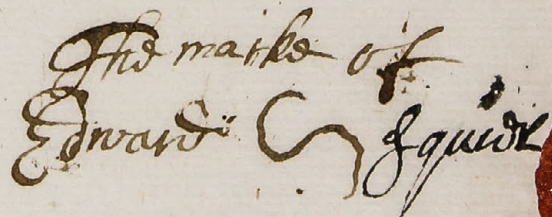 The marke of
Edward Squier